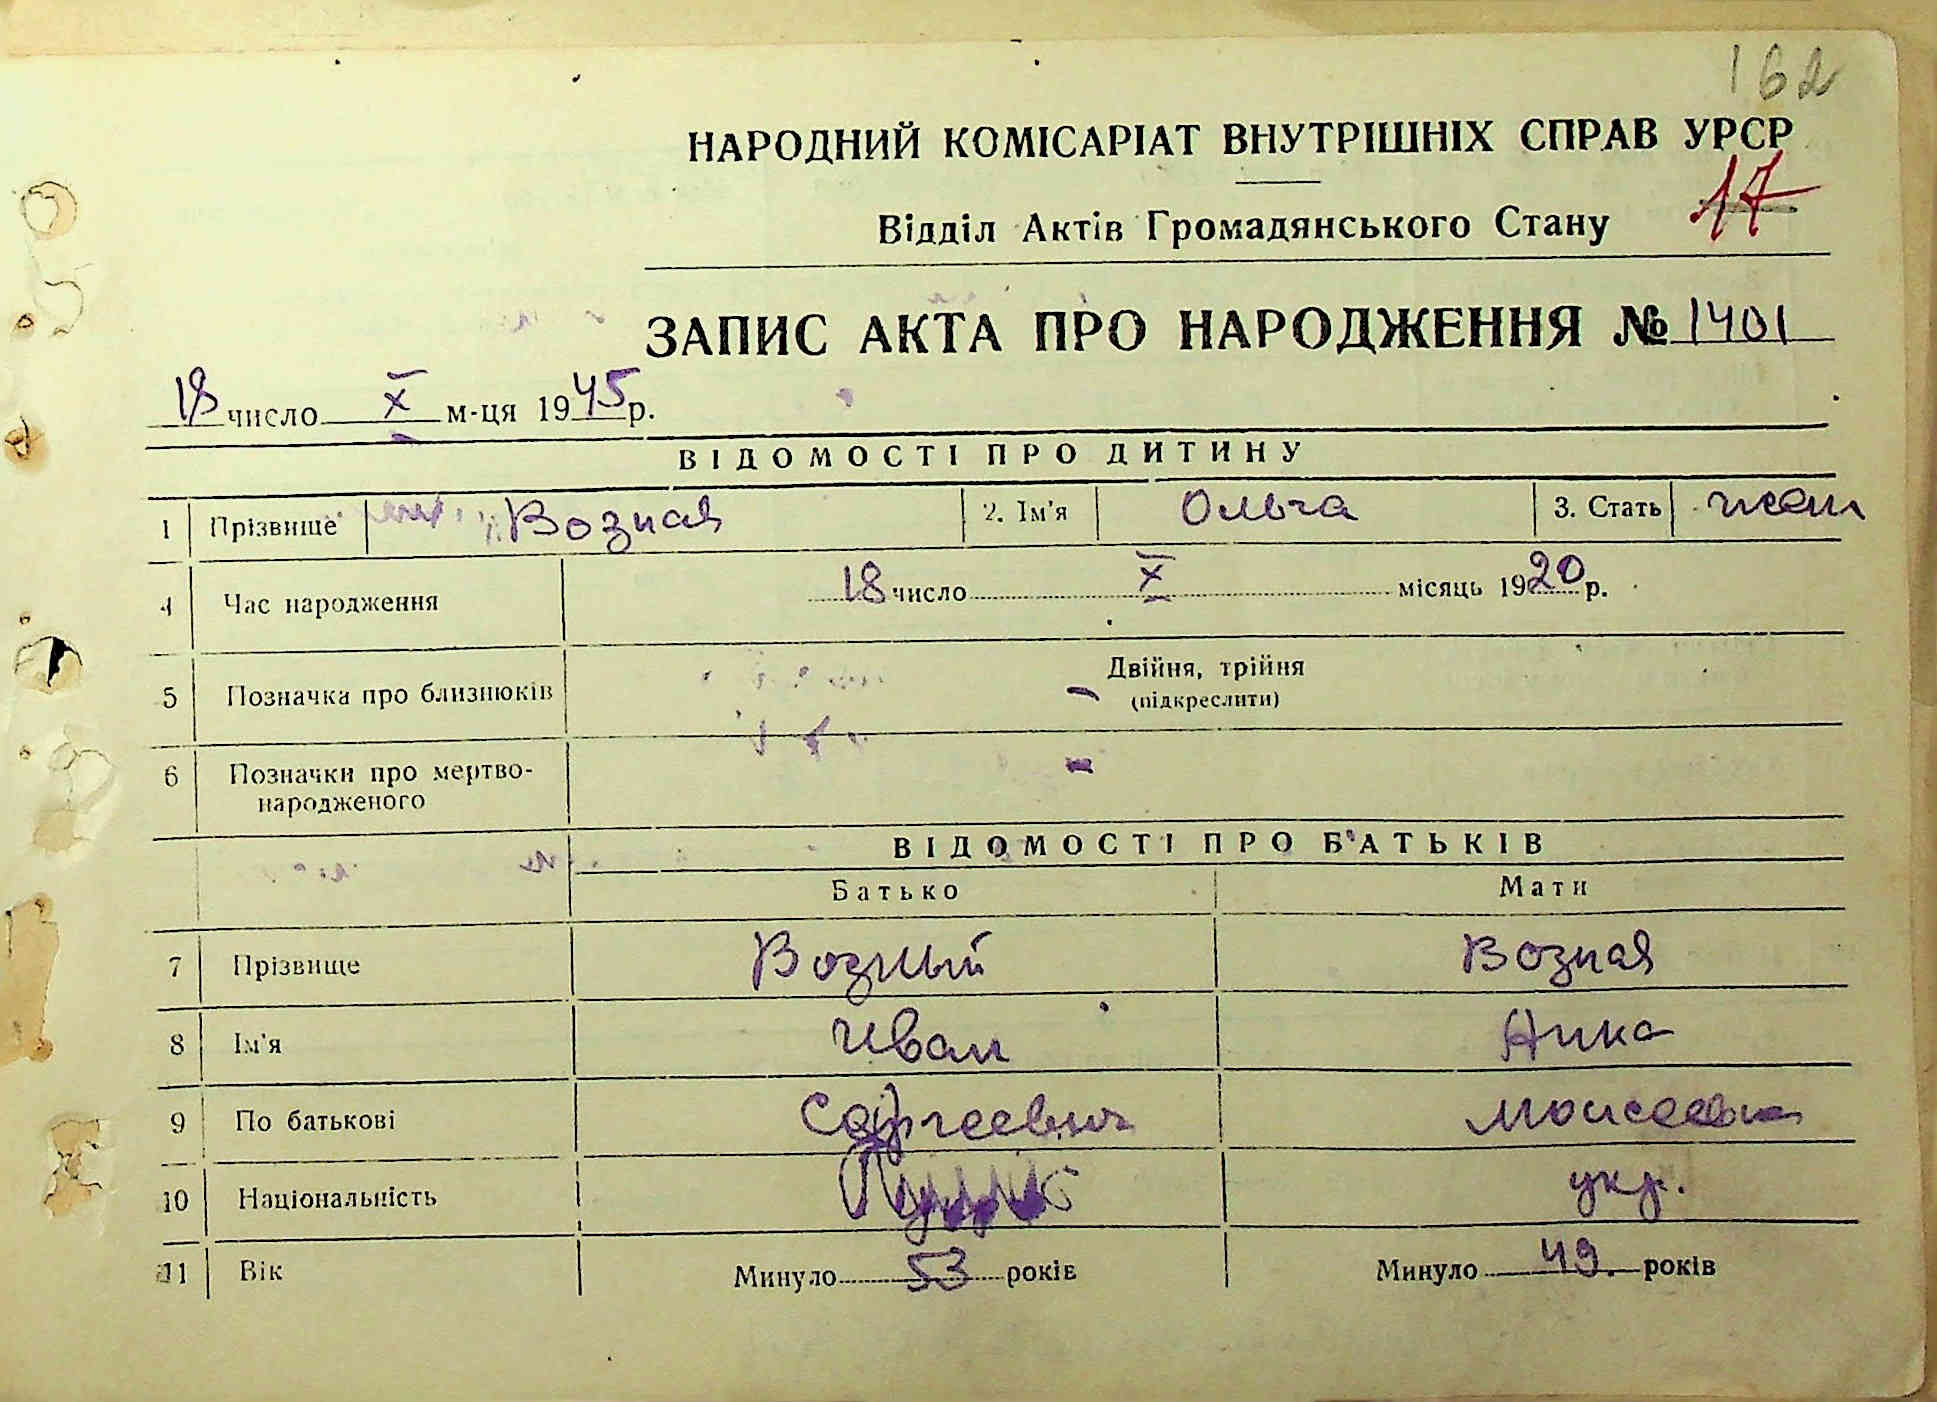 162
НАРОДНИЙ КОМІСАРІАТ ВНУТРІШНІХ СПРАВ УРСР
17
Відділ Актів Громадянського Стану
ЗАПИС АКТА ПРО НАРОДЖЕННЯ № 1401
18 число X м-ця 1945 р.
ВІДОМОСТІ ПРО ДИТИНУ
1 Прізвище Возная 2. Ім'я Ольга 3. Стать жен
4 Час народження 18 число X місяць 1920 р.
5 Позначка про близнюків - Двійня, трійня
(підкреслити)
6 Позначки про мертво- -
народженого
ВІДОМОСТІ ПРО БАТЬКІВ
Батько Мати
7 Прізвище Возный Возная
8 Ім'я Иван
9 По батькові Сергеевич Моисеевна
10 Національність укр.
11 Вік Минуло 53 років Минуло 49. років